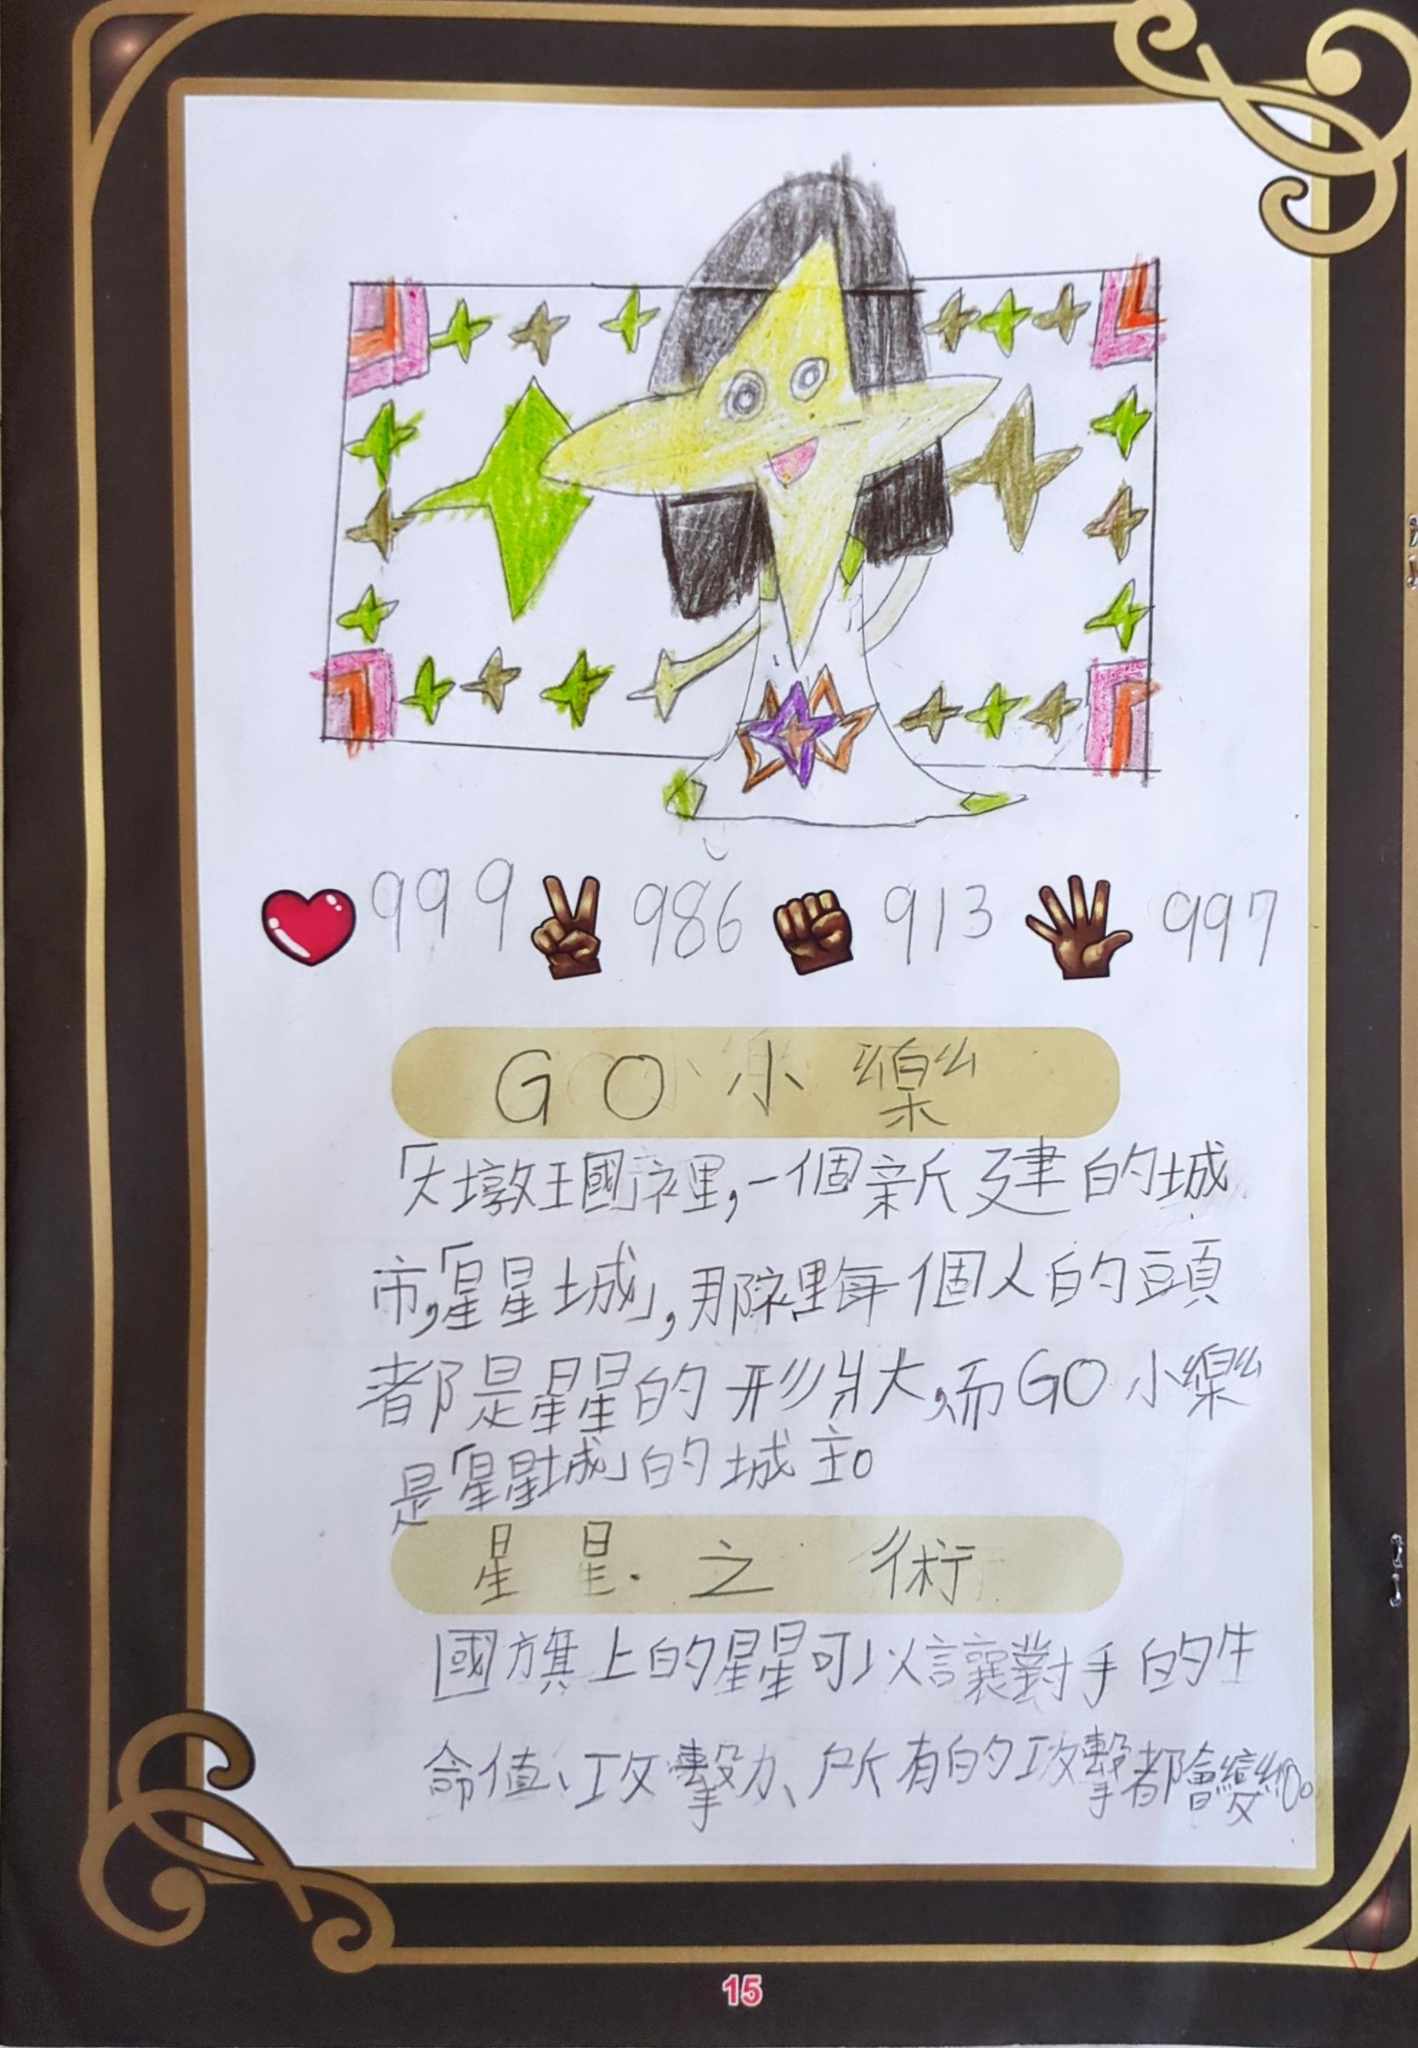 999 986 913 997
GO小樂
「大墩王國」裡,一個新建的城
市,「星星城」,那裡每個人的頭
都是星星的形狀,而GO小樂
是「星星城」的城主。
星星之術
國旗上的星星可以讓對手的生
命值、攻擊力、所有的攻擊都會變成0。
15